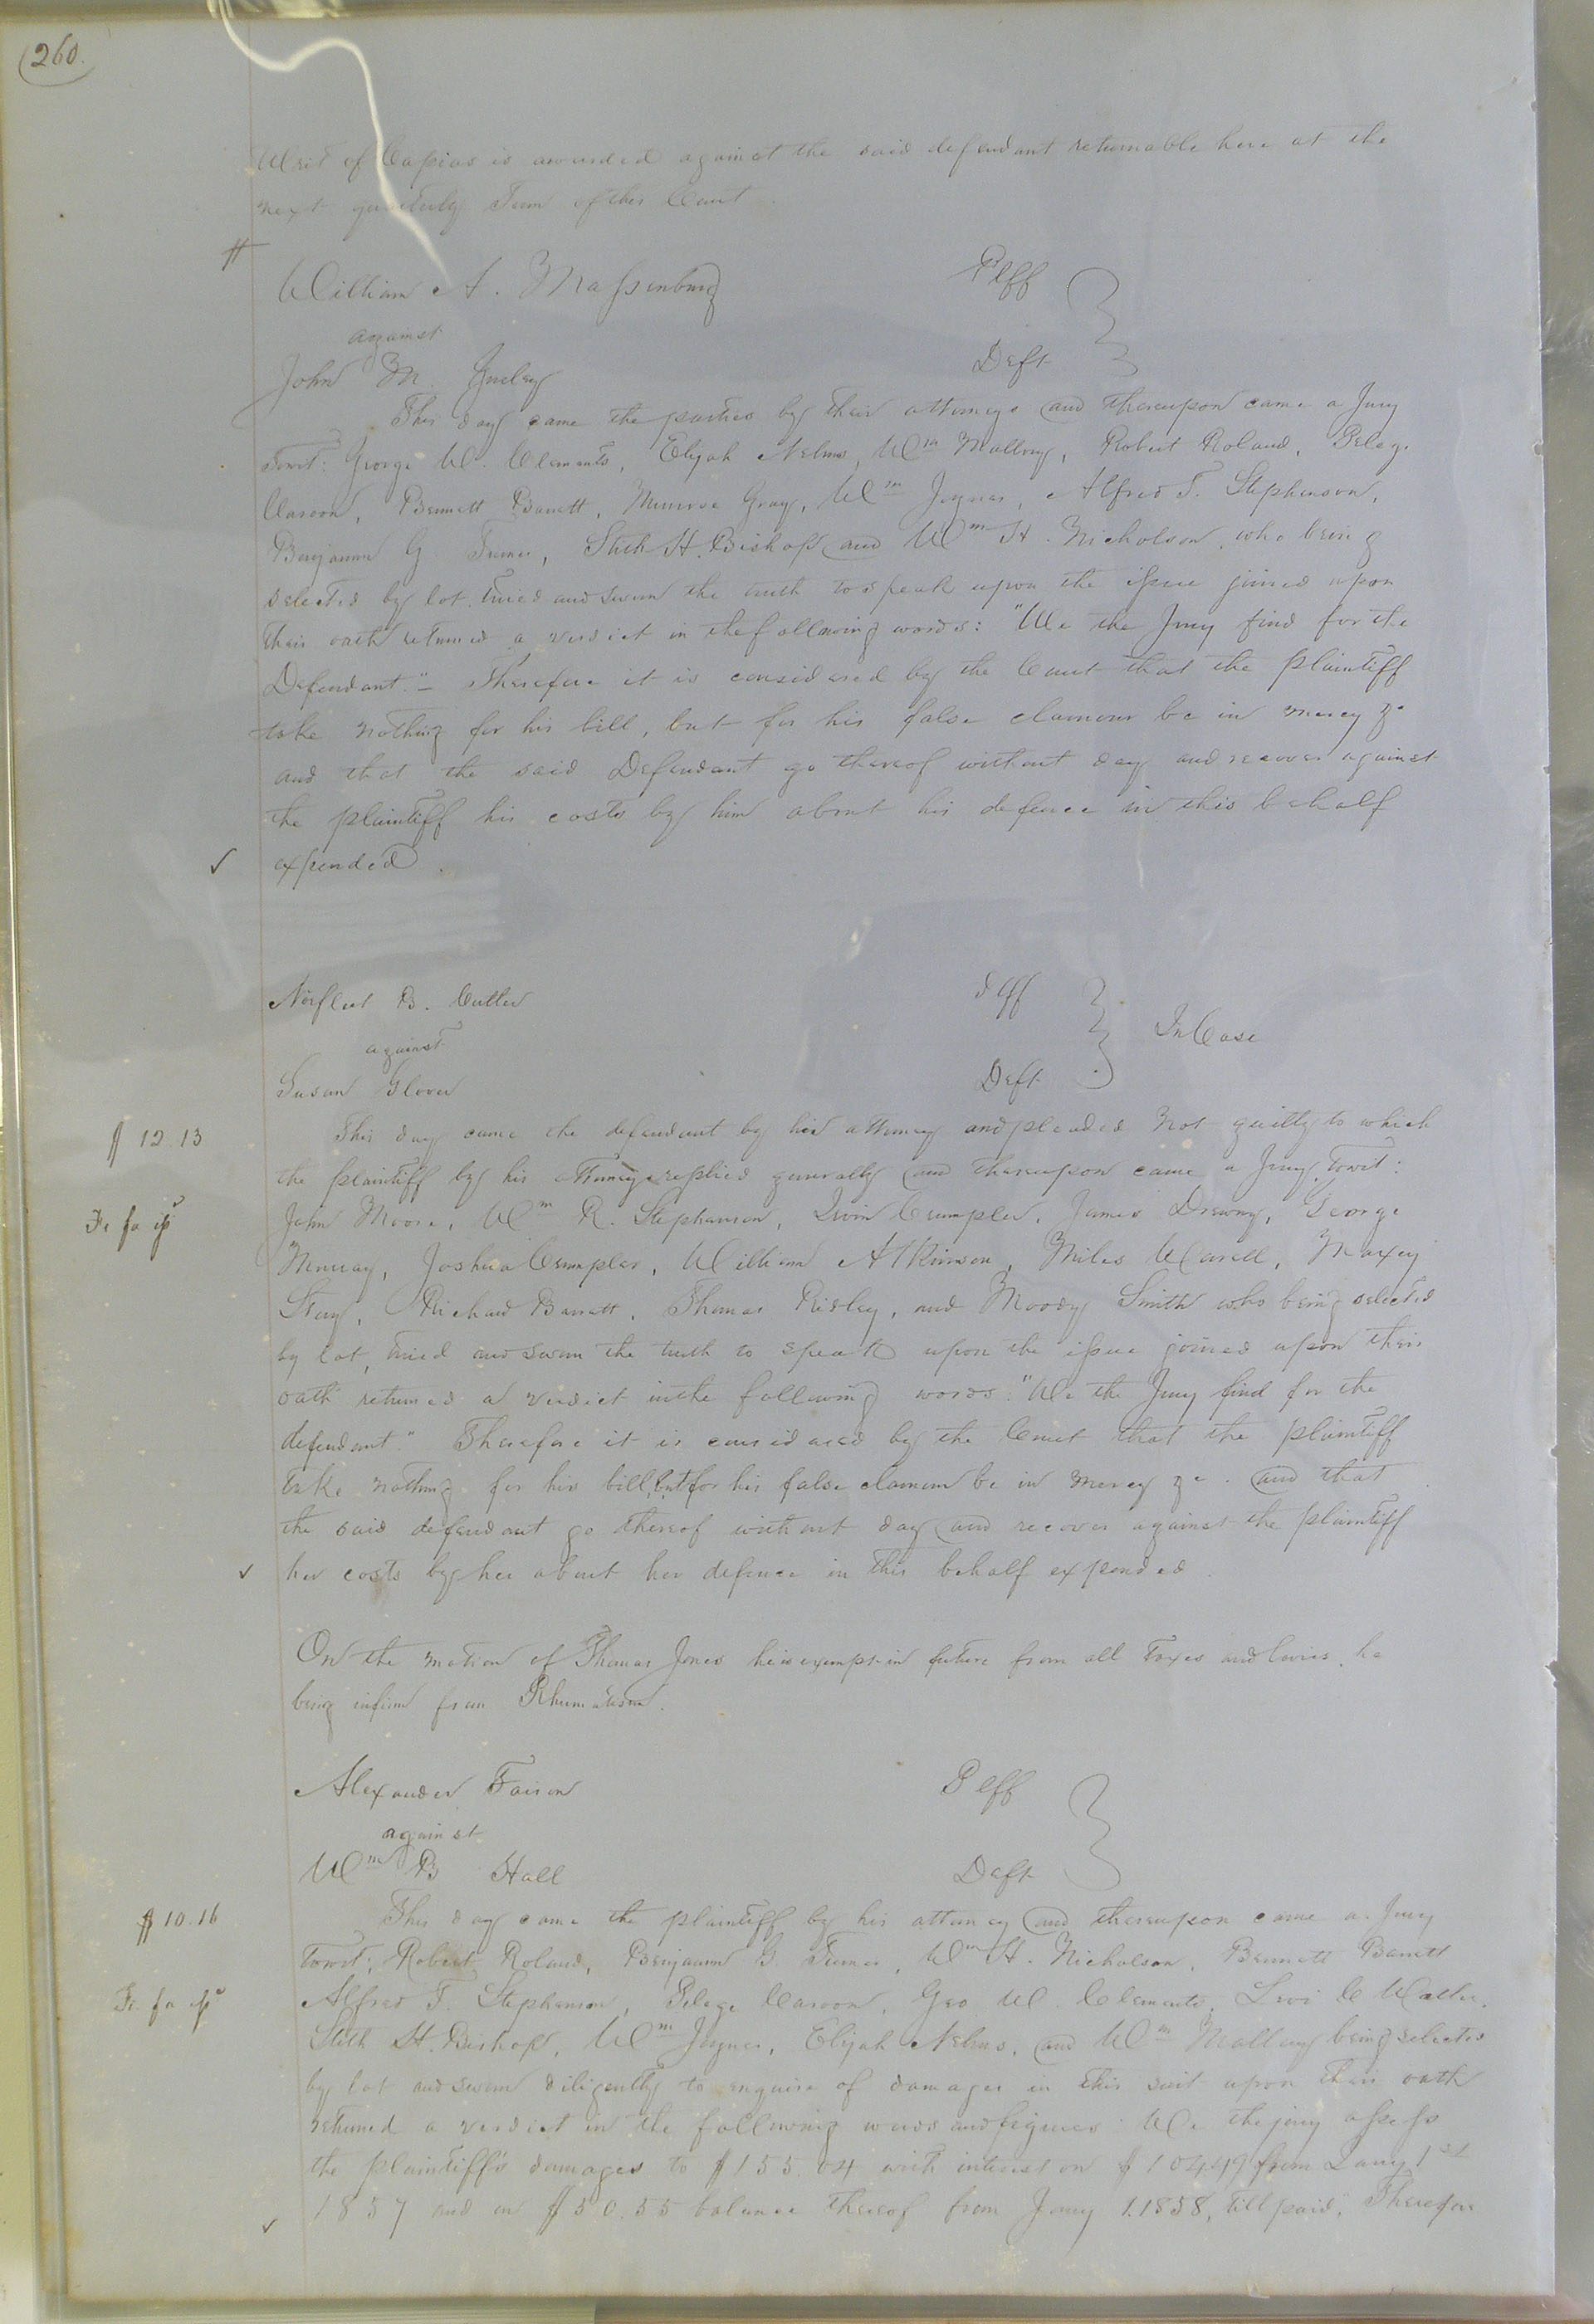 260.
Writ of Capias is awarded against the said defendant returnable here at the
next quarterly Term of this Court.
William A. Massenburg Plff
against
John M. Deft
This day came the parties by their attorneys and thereupon came a Jury
towit: George W. Clements, Elijah Nelms, Wm Mallory, Robert Roland, Peleg.
Carson, Bennett Barrett, Munroe Gray, Wm Joyner, Alfred T. Stephenson,
Benjamin G Turner, Steth H. Bishop and Wm H. Nicholson, who being
selected by lot, tried and sworn the truth to speak upon the issue joined upon
their oath returned a verdict in the following words: "We the Jury find for the
Defendant." – Therefore it is considered by the Court that the plaintiff
take nothing for his bill, but for his false clamour be in mercy &c
and that the said Defendant go thereof without day and recover against
the plaintiff his costs by him about his defence in this behalf
✓ expended.
Norfleet B. Cutler Plff
against In Case
Susan Glover Deft
$12.13 This day came the defendant by her attorney and pleaded not guilty to which
the plaintiff by his attorney replied generally and thereupon came a Jury, towit:
Fi fa John Moore, Wm R. Stephenson, Irvin Crumpler, James Drewry, George
Murray, Joshua Crumpler, William Atkinson, Miles Worrell, Maxey
Story, Richard Barrett, Thomas Risley, and Moody Smith who being selected
by lot, tried and sworn the truth to speak upon the issue joined upon their
oath returned a verdict in the following words: "We the Jury find for the
defendant." Therefore it is considered by the Court that the plaintiff
take nothing for his bill, but for his false clamour be in mercy &c. and that
the said defendant go thereof without day and recover against the plaintiff
✓ her costs by her about her defence in this behalf expended.
On the motion of Thomas Jones he is exempt in future from all Taxes and levies, he
being infirm from Rhumatism.
Alexander Faison Plff
against
Wm B Hall Deft
$10.16 This day came the plaintiff by his attorney and thereupon came a Jury
towit; Robert Roland, Benjamin G. Turner, Wm H. Nicholson, Bennett Barrett
Fi. fa Alfred T. Stephenson, Peleg Carson, Geo W. Clements, Levi C Waller,
Steth H. Bishop, Wm Joyner, Elijah Nelms, and Wm Mallory being selected
by lot and sworn diligently to enquire of damages in this suit upon their oath
returned a verdict in the following words and figures: We the jury assess
the plaintiff's damages to $155.04 with interest on $104.49 from Jany 1st
✓ 1857 and on $50.55 balance thereof from Jany 1.1858, till paid." Therefore